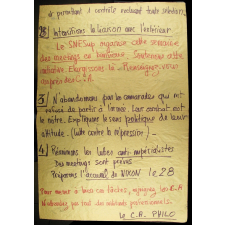 et permettant 1 contrôle
② Intensifions la liaison avec l'extérieur
Le SNESup organise cette semaine
des meetings de banlieue. Soutenons cette
initiative Elargissons la. Renseignez vous
auprès des C.A.
③ N'abandonnons pas les camarades qui ont
de partir à l'armée. Leur combat est
le nôtre. Expliquons le sens politique de leur
attitude. (lutte contre la répression)
④ Réanimons les luttes anti-impérialistes
Des meetings sont prévus
Préparons l'accueil de NIXON le 28
Pour mener à bien ces tâches, rejoignez les C.A
N'attendez pas
le C.A. PHILO